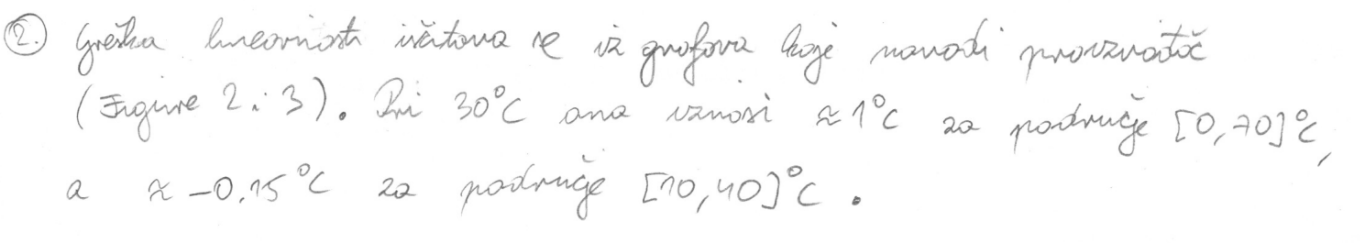 2. Greška linearnosti iščitava se iz grafova koje navodi proizvođač
(Figure 2 i 3). Pri 30°C ona iznosi ≈ 1°C za područje [0,70]°C,
a ≈ -0,15°C za područje [10,40]°C.